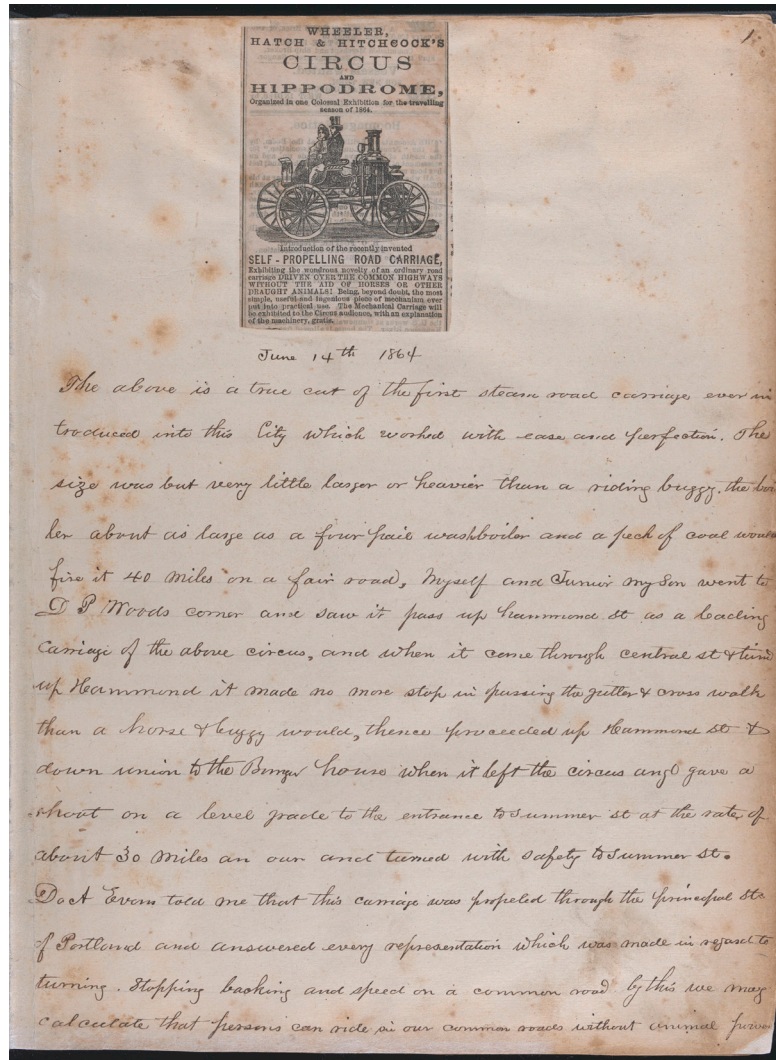 1
WHEELER,
HATCH & HITCHCOCK'S
CIRCUS
AND
HIPPODROME,
Organized in one Colossal Exhibition for the travelling
season of 1864.
Introduction of the recently invented
SELF-PROPELLING ROAD CARRIAGE,
Exhibiting the wondrous novelty of an ordinary road
carriage DRIVEN OVER THE COMMON HIGHWAYS
WITHOUT THE AID OF HORSES OR OTHER
DRAUGHT ANIMALS! Being, beyond doubt, the most
simple, useful and ingenious piece of mechanism ever
put into practical use. The Mechanical Carriage will
be exhibited to the Circus audience, with an explanation
of the machinery, gratis.
June 14th 1864
The above is a true cut of the first steam road carriage ever in
troduced into this City which worked with ease and perfection. The
size was but very little larger or heavier than a riding buggy. the boi
ler about as large as a four pail washboiler and a peck of coal would
fire it 40 miles on a fair road, Myself and Junior my Son went to
D P Woods corner and saw it pass up hammond St as a leading
Carriage of the above circus, and when it come through central st & turnd
up Hammond it made no more stop in passing the gutter & cross walk
than a horse & buggy would, thence proceeded up Hammond St &
down union to the Bangor house when it left the circus and gave a
shoot on a level grade to the entrance to Summer st at the rate of
about 30 miles an our and turned with safety to Summer st.
Doct told me that this carriage was propeled through the principal Sts
of Portland and answered every representation which was made in regard to
turning. Stopping backing and speed on a common road by this we may
calculate that persons can ride in our common roads without animal power